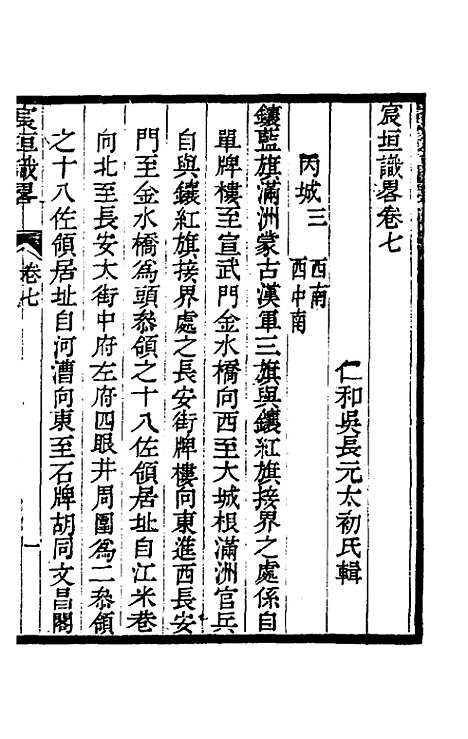 宸垣識畧卷七
仁和吳長元太初氏輯
內城三 西南 西中南
鑲藍旗滿洲蒙古漢軍三旗與鑲紅旗接界之處係自
單牌樓至宣武門金水橋向西至大城根滿洲官兵
自與鑲紅旗接界處之長安街牌樓向東進西長安
門至金水橋爲頭叅領之十八佐領居址自江米巷
向北至長安大街中府左府四眼井周圍爲二叅領
之十八佐領居址自河漕向東至石牌胡同文昌閣
宸垣識畧 卷七 一